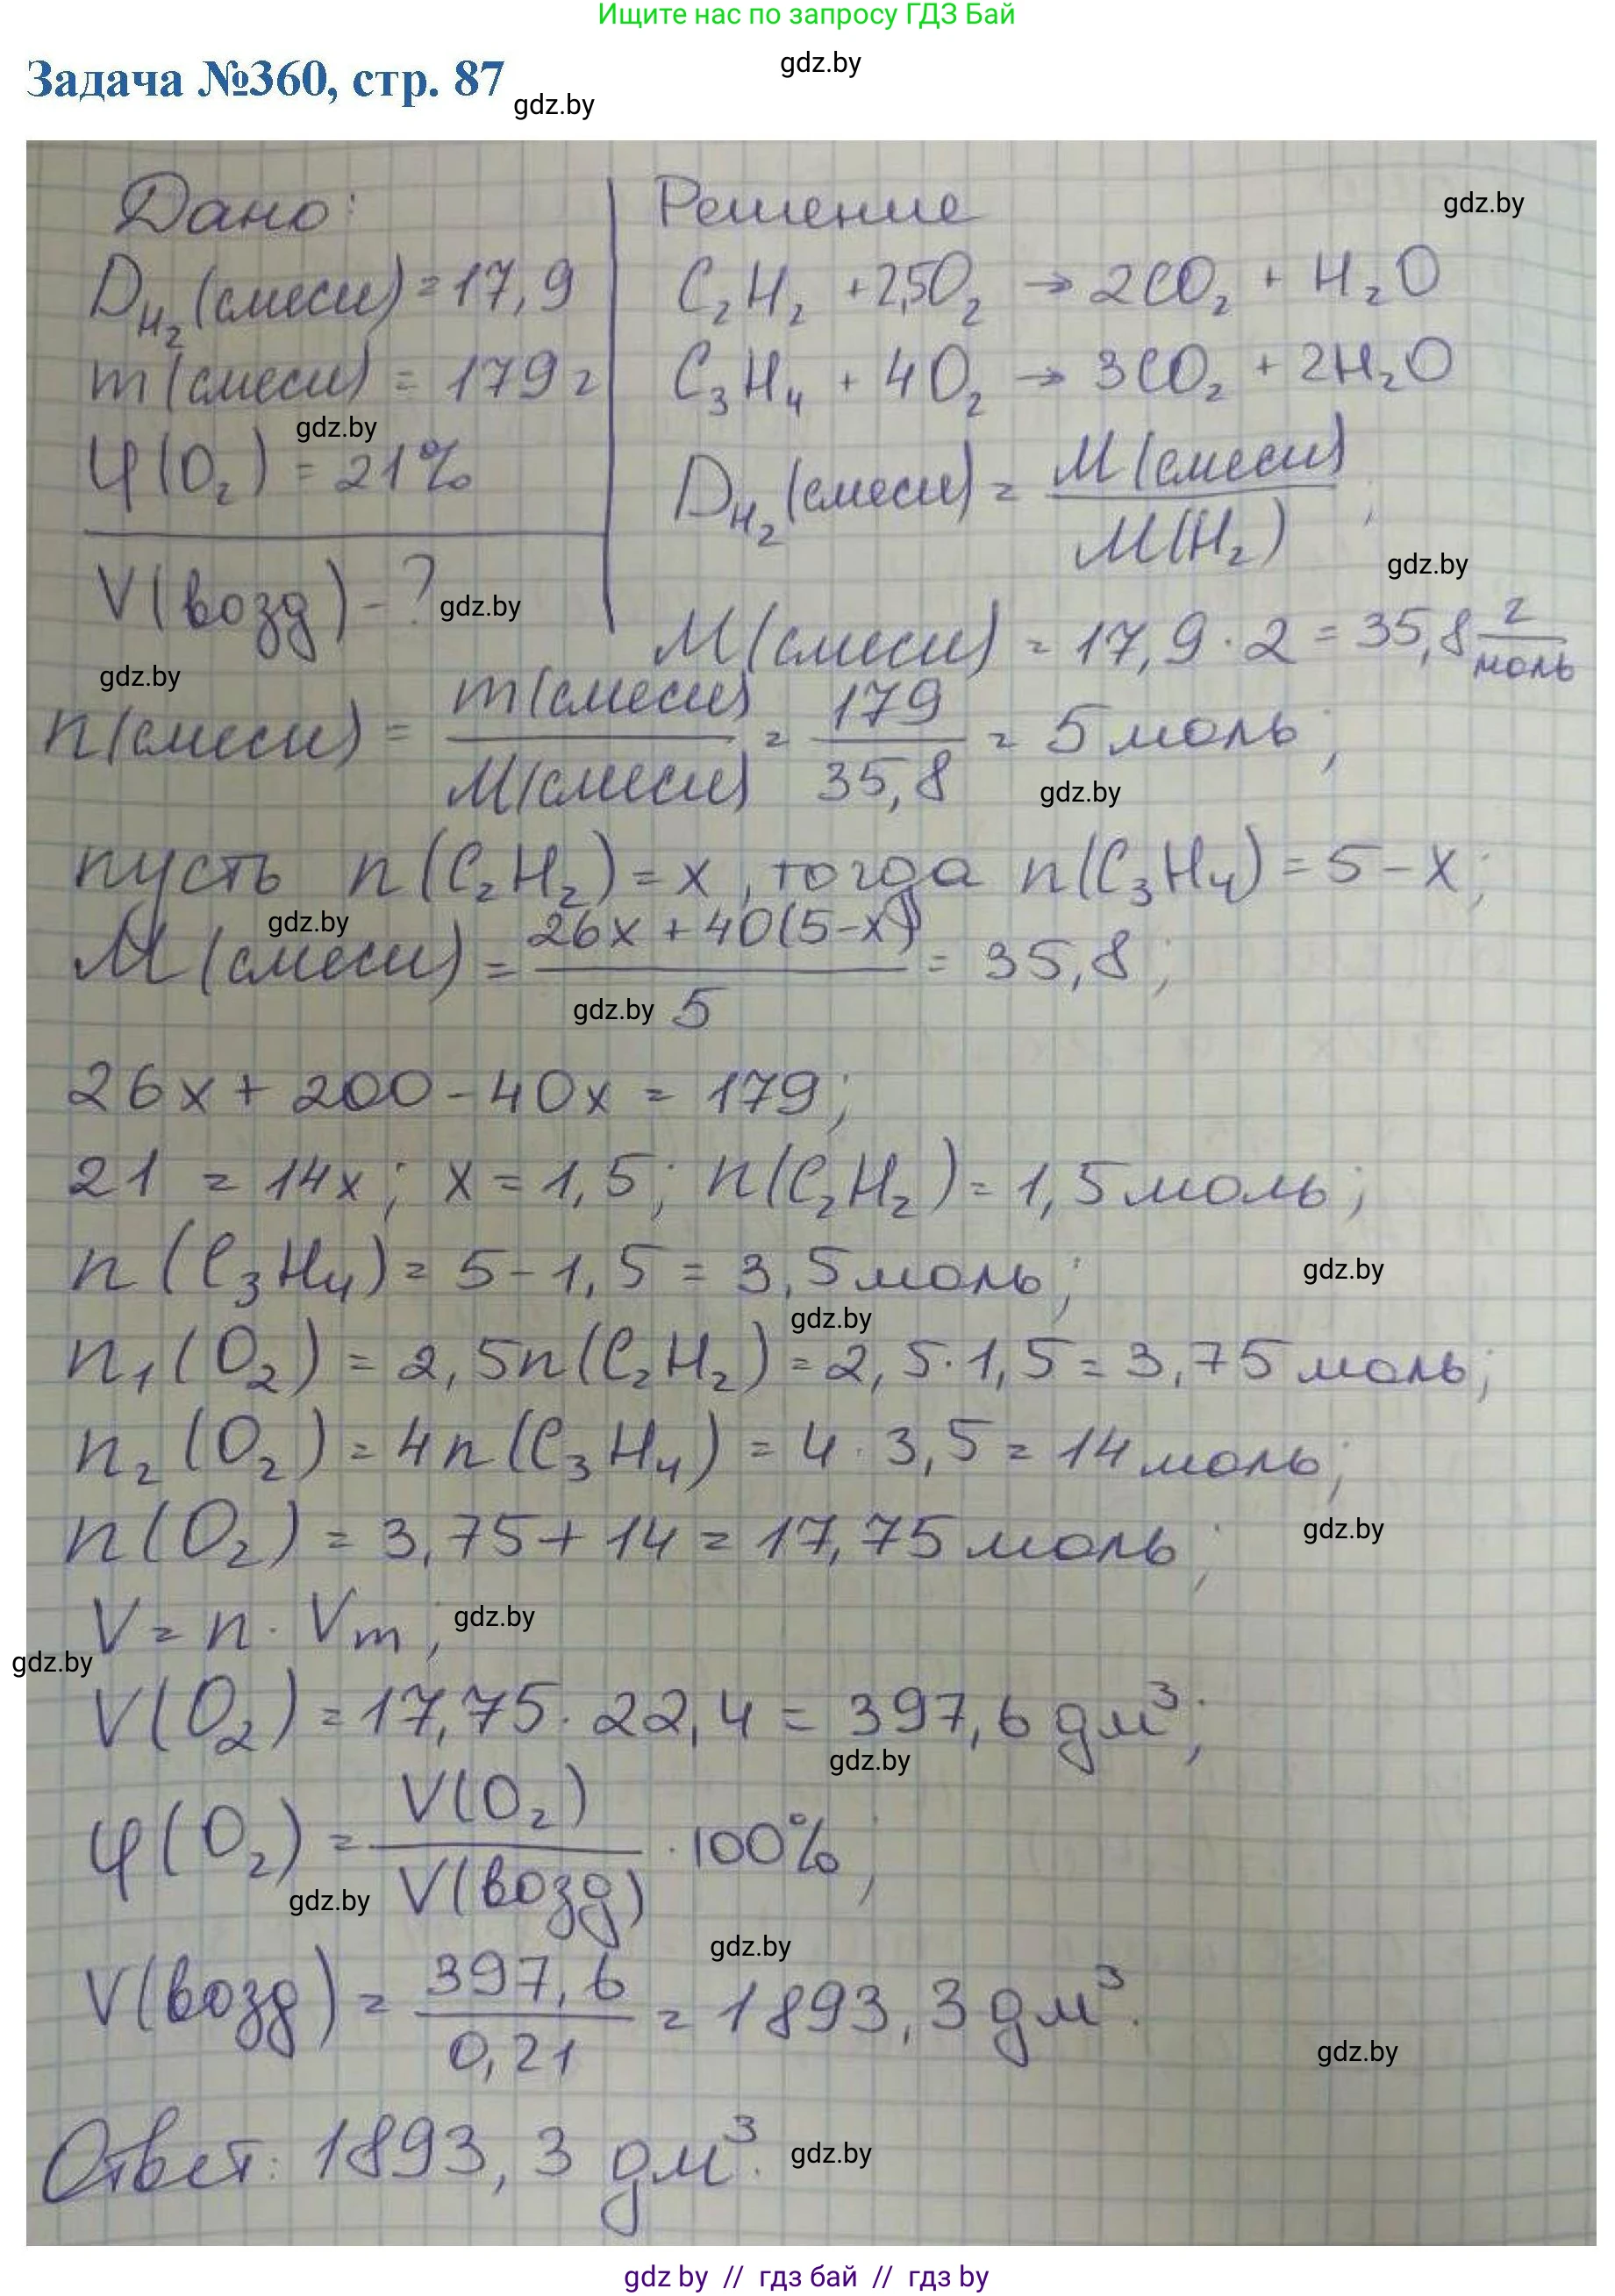 Ищите нас по запросу ГДЗ Бай
gdz.by
Задача №360, стр. 87
gdz.by
Дано:
D_H₂(смеси) = 17,9
m(смеси) = 179 г
gdz.by
φ(O₂) = 21%
V(возд) - ?
gdz.by
gdz.by
Решение
gdz.by
C₂H₂ + 2,5O₂ → 2CO₂ + H₂O
C₃H₄ + 4O₂ → 3CO₂ + 2H₂O
D_H₂(смеси) = M(смеси) / M(H₂) ;
gdz.by
M(смеси) = 17,9 · 2 = 35,8 г/моль
n(смеси) = m(смеси) / M(смеси) = 179 / 35,8 = 5 моль;
gdz.by
пусть n(C₂H₂) = x, тогда n(C₃H₄) = 5 - x;
gdz.by
M(смеси) = 26x + 40(5-x) / 5 = 35,8;
gdz.by
26x + 200 - 40x = 179;
21 = 14x; x = 1,5; n(C₂H₂) = 1,5 моль;
n(C₃H₄) = 5 - 1,5 = 3,5 моль;
gdz.by
gdz.by
n₁(O₂) = 2,5n(C₂H₂) = 2,5 · 1,5 = 3,75 моль;
n₂(O₂) = 4n(C₃H₄) = 4 · 3,5 = 14 моль;
n(O₂) = 3,75 + 14 = 17,75 моль;
gdz.by
V = n · Vm;
gdz.by
gdz.by
V(O₂) = 17,75 · 22,4 = 397,6 дм³;
gdz.by
φ(O₂) = V(O₂) / V(возд) · 100%;
gdz.by
gdz.by
V(возд) = 397,6 / 0,21 = 1893,3 дм³.
gdz.by
Ответ: 1893,3 дм³.
gdz.by
gdz by // гдз бай // гдз by